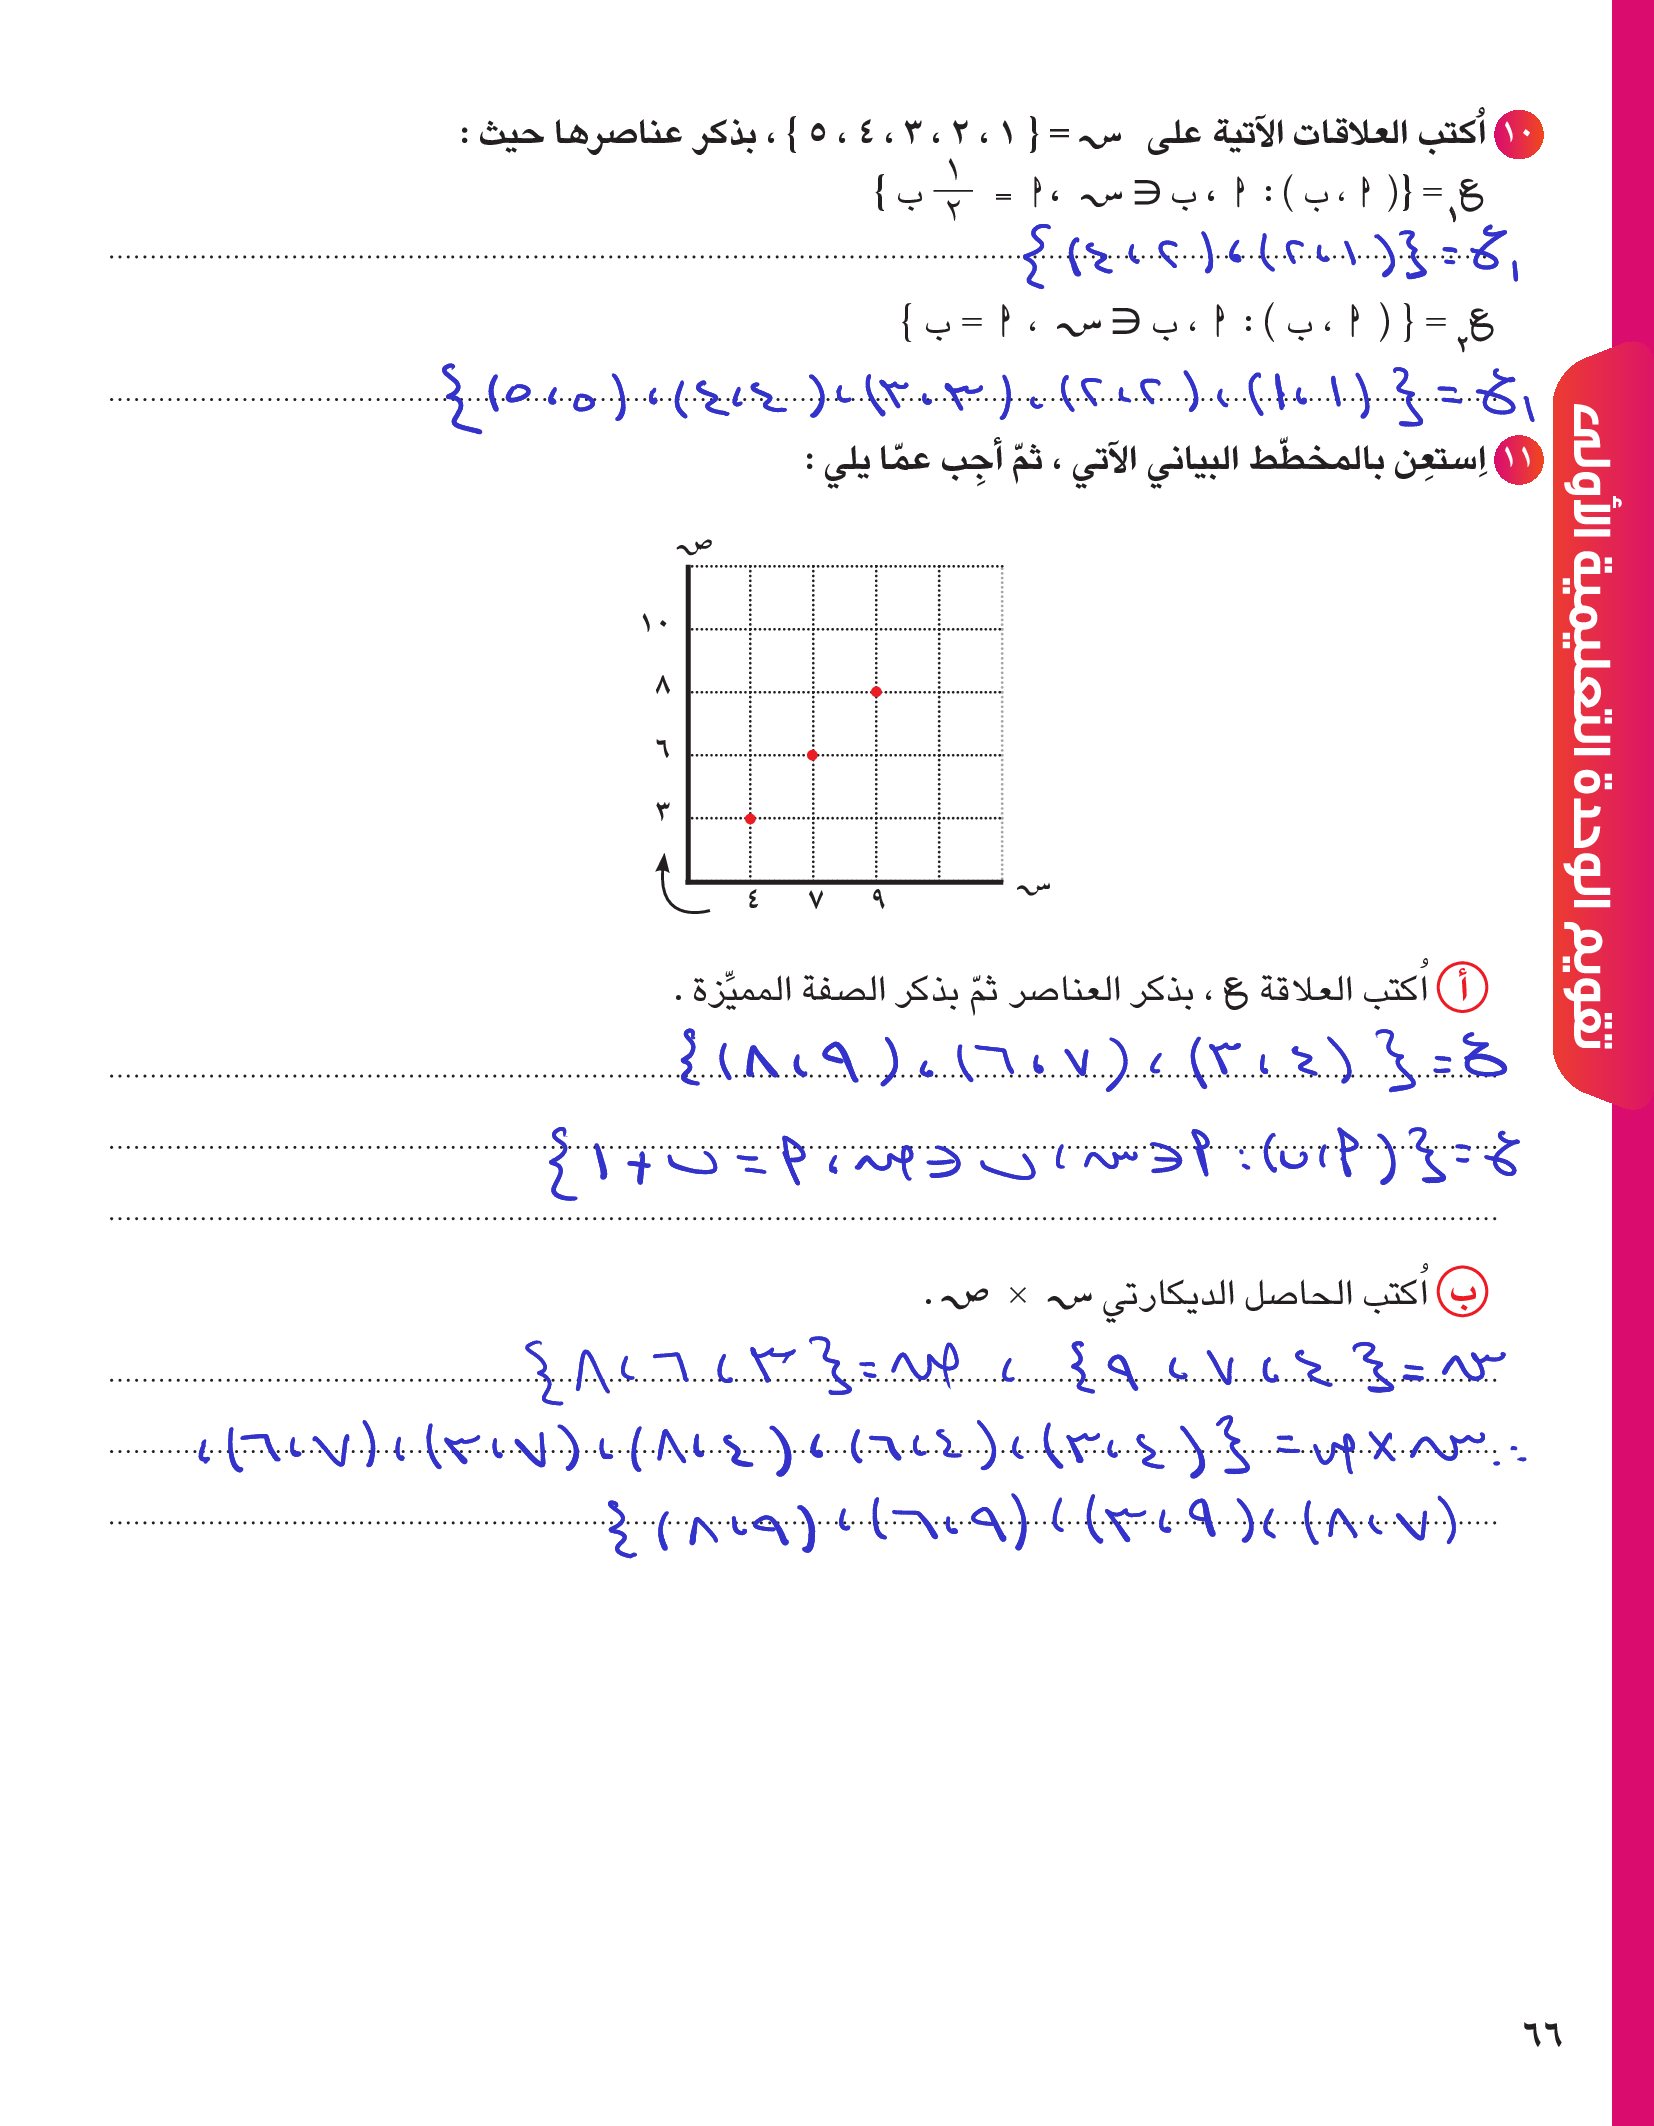 ١٠ اُكتب العلاقات الآتية على س = { ١ ، ٢ ، ٣ ، ٤ ، ٥ } ، بذكر عناصرها حيث :
ع١ = {( أ ، ب ) : أ ، ب ∈ س ، أ = ١/٢ ب }
ع١ = {(١،٢)،(٢،٤)}
ع٢ = { ( أ ، ب ) : أ ، ب ∈ س ، أ = ب }
ع١ = { (١،١)، (٢،٢)، (٣،٣)،(٤،٤)، (٥،٥) }
١١ اِستعِن بالمخطّط البياني الآتي ، ثمّ أجِب عمّا يلي :
ص
١٠
٨
٦
٣
٤ ٧ ٩
س
أ اُكتب العلاقة ع ، بذكر العناصر ثمّ بذكر الصفة المميِّزة .
ع = { (٤،٣) ، (٧،٦) ، (٩،٨) }
ع = { (أ،ب) : أ ∈ س ، ب ∈ ص ، أ = ب + ١ }
ب اُكتب الحاصل الديكارتي س × ص .
س = { ٤ ، ٧ ، ٩ } ، ص = { ٣ ، ٦ ، ٨ }
∴ س × ص = { (٤،٣) ، (٤،٦) ، (٤،٨) ، (٧،٣) ، (٧،٦) ،
(٧،٨) ، (٩،٣) ، (٩،٦) ، (٩،٨) }
تقويم الوحدة التعليمية الأولى
٦٦